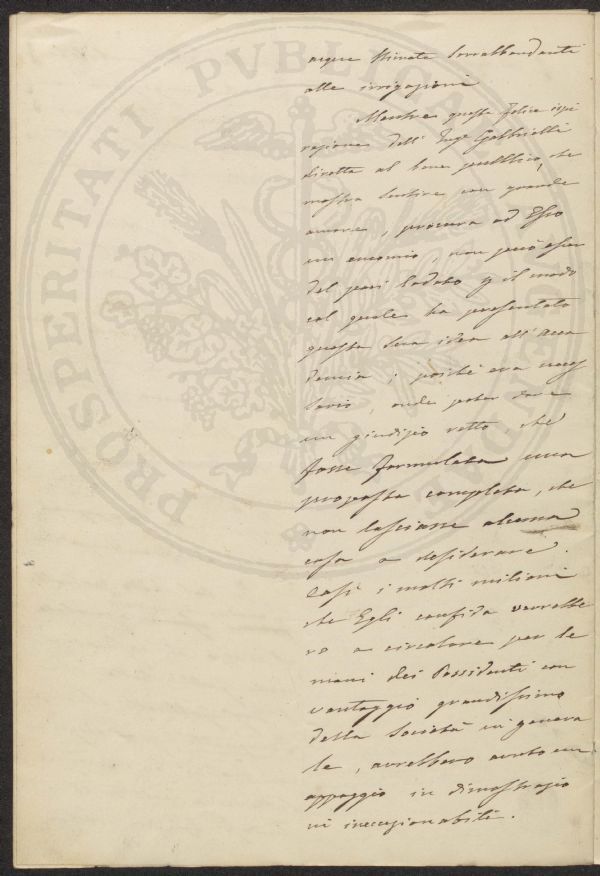 acque stimate sovrabbondanti
alle irrigazioni
Mentre questa felice ispi
razione dell' Inge Gabbrielli
diretta al bene pubblico, che
mostra sentire con grande
amore, procura ad Esso
un encomio, non può esser
del pari lodato il modo
col quale ha presentata
questa sua idea all' Acca
demia; poichè era neces
sario, onde poter dare
un giudizio retto, che
fosse formulata una
proposta completa, che
non lasciasse alcuna
cosa a desiderare.
Così i molti milioni
che Egli confida verrebbe
ro a circolare per le
mani dei Possidenti con
vantaggio grandissimo
della Società in genera
le, avrebbero avuto un
appoggio in dimostrazio
ni ineccezionabili.
PROSPERITATI PUBLICAE AUGENDAE